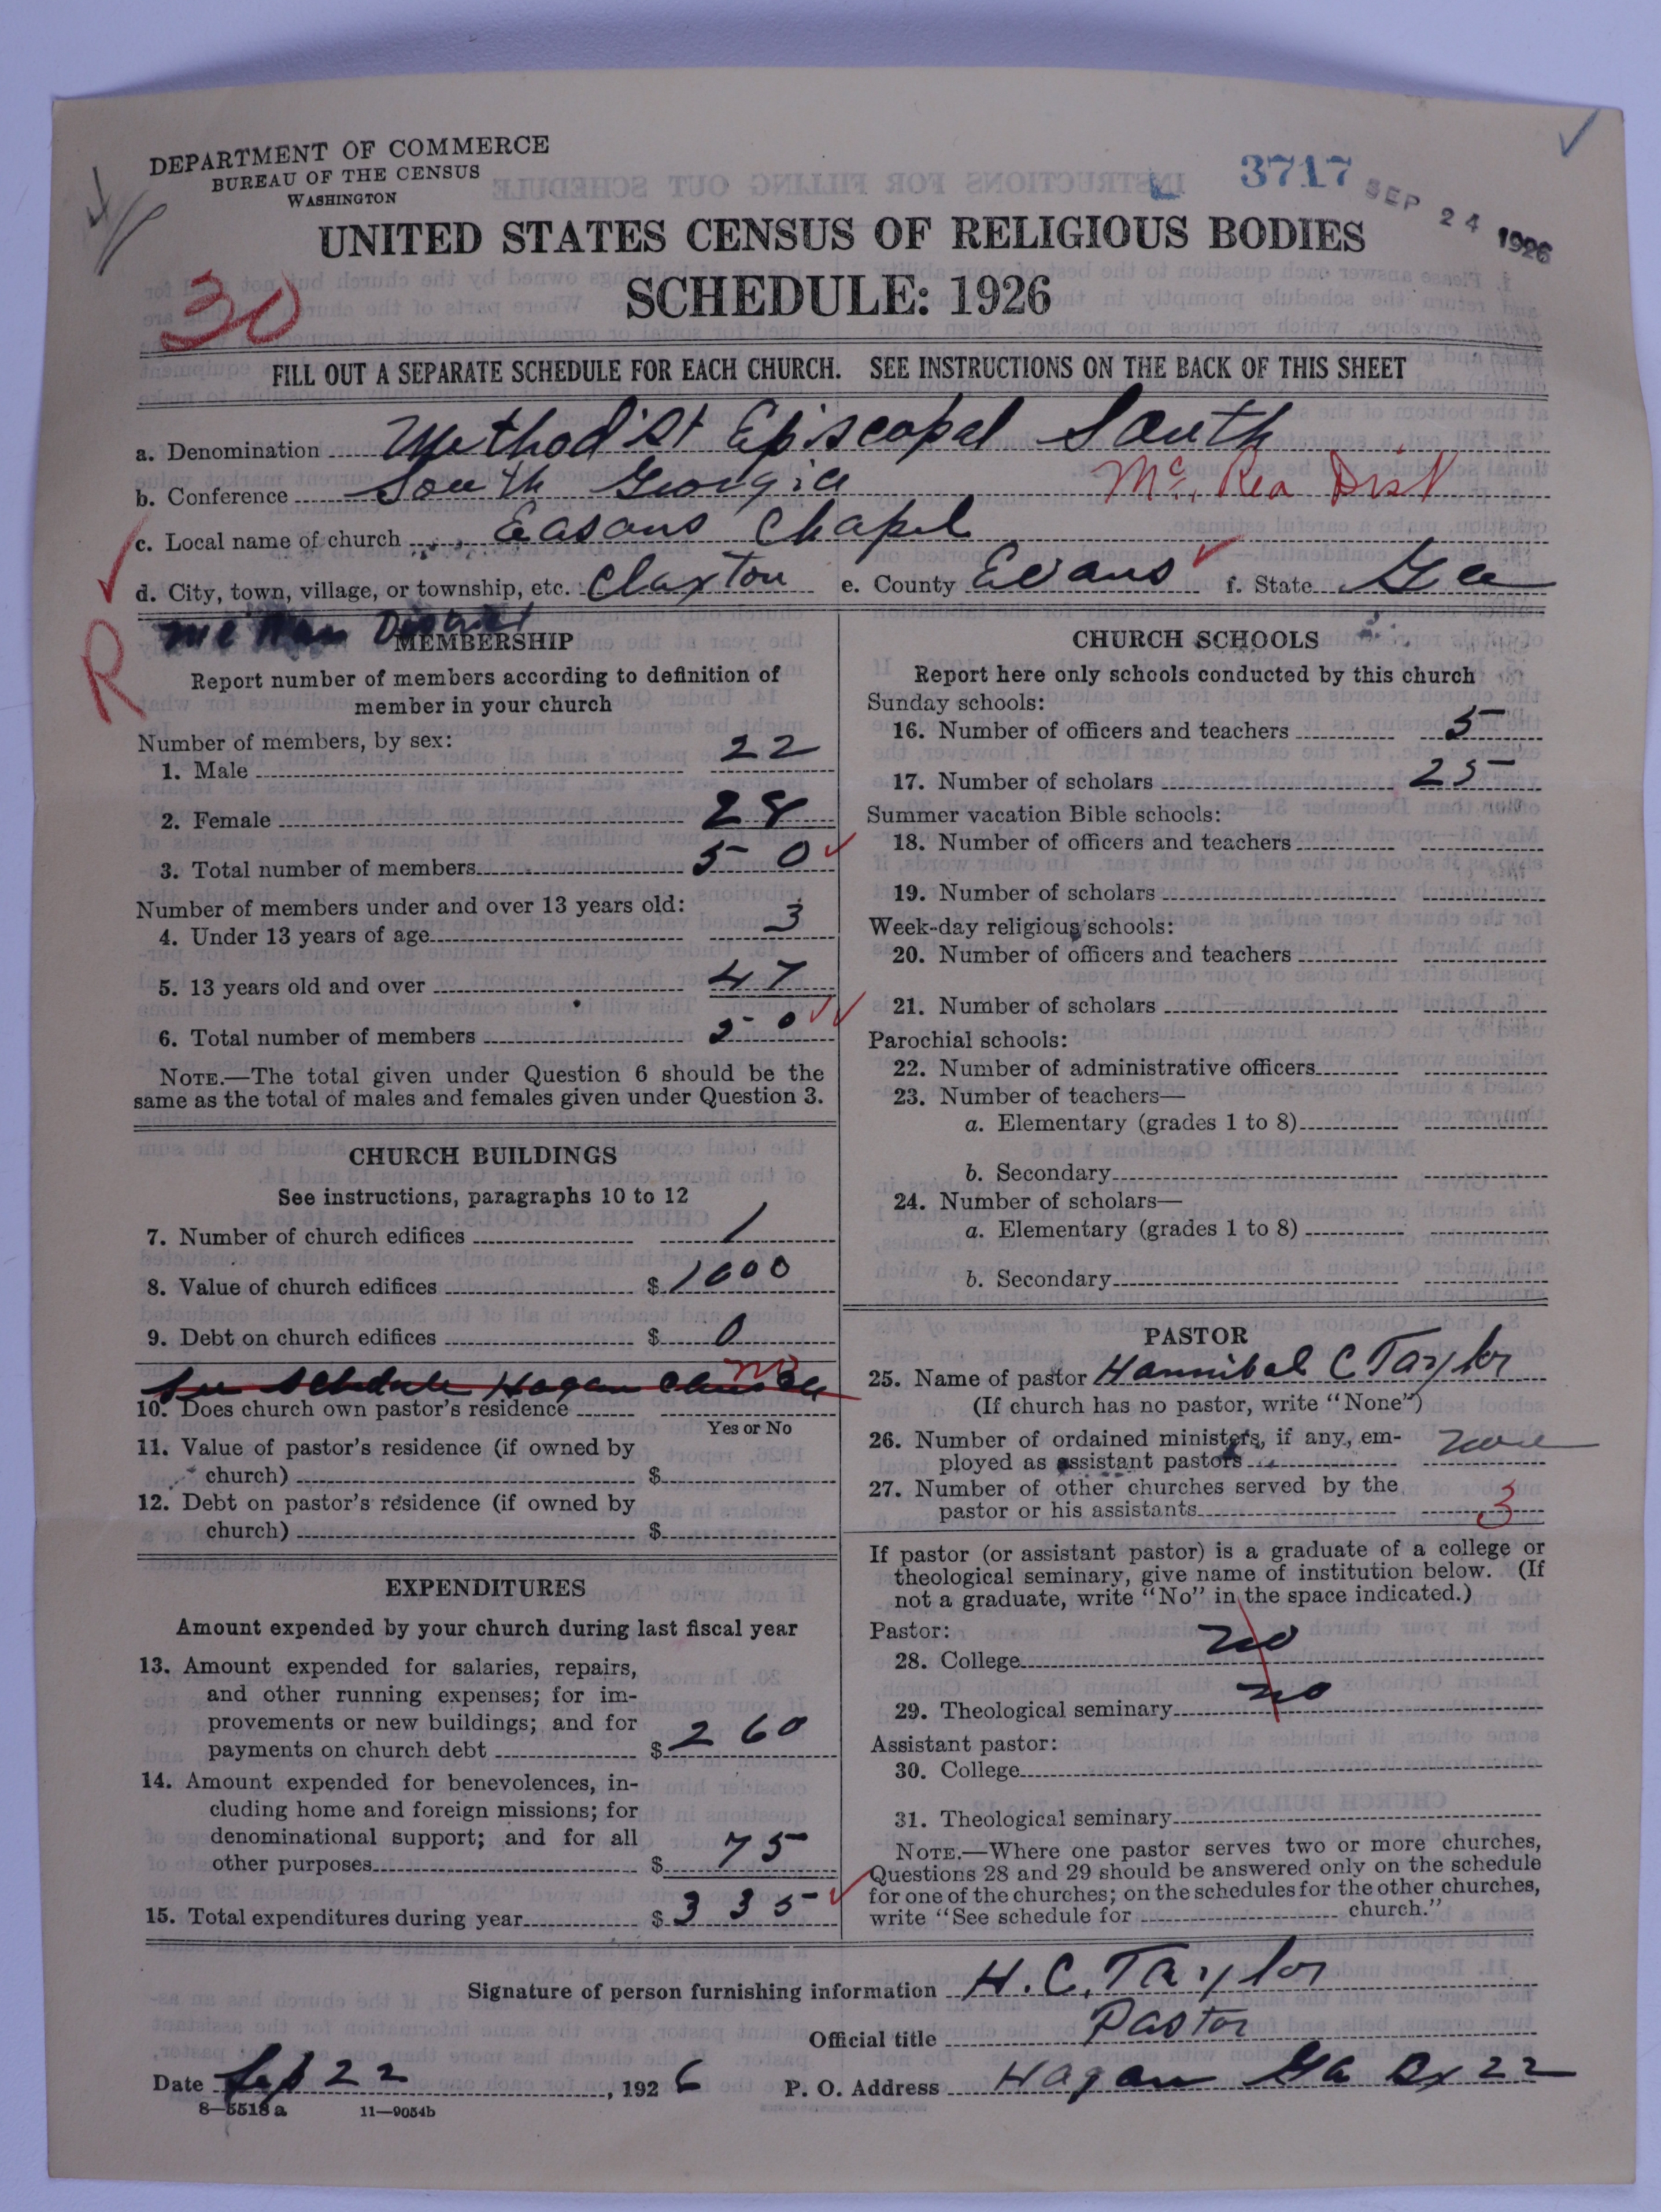 DEPARTMENT OF COMMERCE
BUREAU OF THE CENSUS
WASHINGTON
3717
SEP 24 1926
UNITED STATES CENSUS OF RELIGIOUS BODIES
SCHEDULE: 1926
30
FILL OUT A SEPARATE SCHEDULE FOR EACH CHURCH. SEE INSTRUCTIONS ON THE BACK OF THIS SHEET
a. Denomination Methodist Episcopal South
b. Conference South Georgia Mc. Rea Dist
c. Local name of church Easons Chapel
d. City, town, village, or township, etc. Claxton e. County Evans f. State Ga
R
District
MEMBERSHIP
Report number of members according to definition of
member in your church
Number of members, by sex:
1. Male 22
2. Female 28
3. Total number of members 50
Number of members under and over 13 years old:
4. Under 13 years of age 3
5. 13 years old and over 47
6. Total number of members 50
NOTE.—The total given under Question 6 should be the
same as the total of males and females given under Question 3.
CHURCH BUILDINGS
See instructions, paragraphs 10 to 12
7. Number of church edifices 1
8. Value of church edifices $ 1000
9. Debt on church edifices $ 0
See Schedule Hagan Church
no
10. Does church own pastor's residence
Yes or No
11. Value of pastor's residence (if owned by
church) $
12. Debt on pastor's residence (if owned by
church) $
EXPENDITURES
Amount expended by your church during last fiscal year
13. Amount expended for salaries, repairs,
and other running expenses; for im-
provements or new buildings; and for
payments on church debt $ 260
14. Amount expended for benevolences, in-
cluding home and foreign missions; for
denominational support; and for all
other purposes $ 75
15. Total expenditures during year $ 335
CHURCH SCHOOLS
Report here only schools conducted by this church
Sunday schools:
16. Number of officers and teachers 5
17. Number of scholars 25
Summer vacation Bible schools:
18. Number of officers and teachers
19. Number of scholars
Week-day religious schools:
20. Number of officers and teachers
21. Number of scholars
Parochial schools:
22. Number of administrative officers
23. Number of teachers—
a. Elementary (grades 1 to 8)
b. Secondary
24. Number of scholars—
a. Elementary (grades 1 to 8)
b. Secondary
PASTOR
25. Name of pastor Hannibal C Taylor
(If church has no pastor, write "None")
26. Number of ordained ministers, if any, em-
ployed as assistant pastors none
27. Number of other churches served by the
pastor or his assistants 3
If pastor (or assistant pastor) is a graduate of a college or
theological seminary, give name of institution below. (If
not a graduate, write "No" in the space indicated.)
Pastor:
28. College no
29. Theological seminary no
Assistant pastor:
30. College
31. Theological seminary
NOTE.—Where one pastor serves two or more churches,
Questions 28 and 29 should be answered only on the schedule
for one of the churches; on the schedules for the other churches,
write "See schedule for church."
Signature of person furnishing information H. C. Taylor
Official title Pastor
Date Sep 22, 1926 P. O. Address Hagan Ga Bx 22
8—5518 a 11—9054b